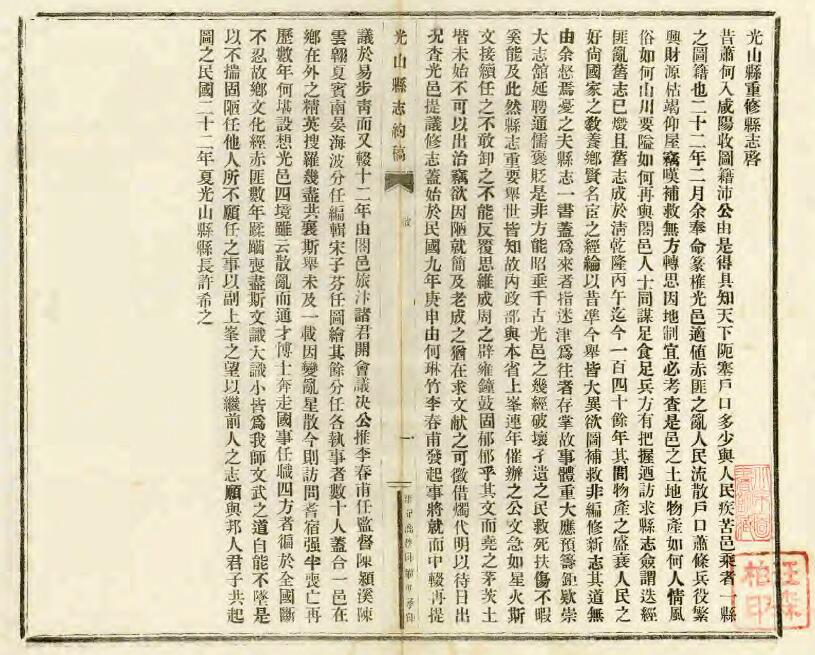 光山縣重修縣志啓
昔蕭何入咸陽收圖籍沛公由是得具知天下阨塞戶口多少與人民疾苦邑乘者一縣
之圖籍也二十二年二月余奉命篆権光邑適値赤匪之亂人民流散戶口蕭條兵役繁
興財源枯竭仰屋竊嘆補救無方轉思因地制宜必考查是邑之土地物產如何人情風
俗如何山川要隘如何再與閤邑人士同謀足食足兵方有把握迺訪求縣志僉謂迭經
匪亂舊志已燬且舊志成於淸乾隆丙午迄今一百四十餘年其間物產之盛衰人民之
好尚國家之敎養鄉賢名宦之經綸以昔準今舉皆大異欲圖補救非編修新志其道無
由余惄焉憂之夫縣志一書蓋爲來者指迷津爲往者存掌故事體重大應預籌鉅欵崇
大志舘延聘通儒褒貶是非方能昭垂千古光邑之幾經破壞孑遺之民救死扶傷不暇
奚能及此然縣志重要舉世皆知故内政部與本省上峯連年催辦之公文急如星火斯
文接續任之不敢卸之不能反覆思維成周之辟雍鐘鼓固郁郁乎其文而堯之茅茨土
堦未始不可以出治竊欲因陋就簡及老成之猶在求文献之可徵借燭代明以待日出
况査光邑提議修志蓋始於民國九年庚申由何琳竹李春甫發起事將就而中輟再提
光山縣志約稿
啓
一
議於易步靑而又輟十二年由閤邑旅汴諸君開會議决公推李春甫任監督陳潁溪陳
雲翺夏賓南晏海波分任編輯宋子芬任圖繪其餘分任各執事者數十人蓋合一邑在
鄉在外之精英搜羅幾盡共襄斯舉未及一載因變亂星散今則訪問耆宿强半喪亡再
歷數年何堪設想光邑四境雖云散亂而通才博士奔走國事任職四方者徧於全國斷
不忍故鄉文化經赤匪數年蹂躪喪盡斯文識大識小皆爲我師文武之道自能不墜是
以不揣固陋任他人所不願任之事以副上峯之望以繼前人之志願與邦人君子共起
圖之民國二十二年夏光山縣縣長許希之